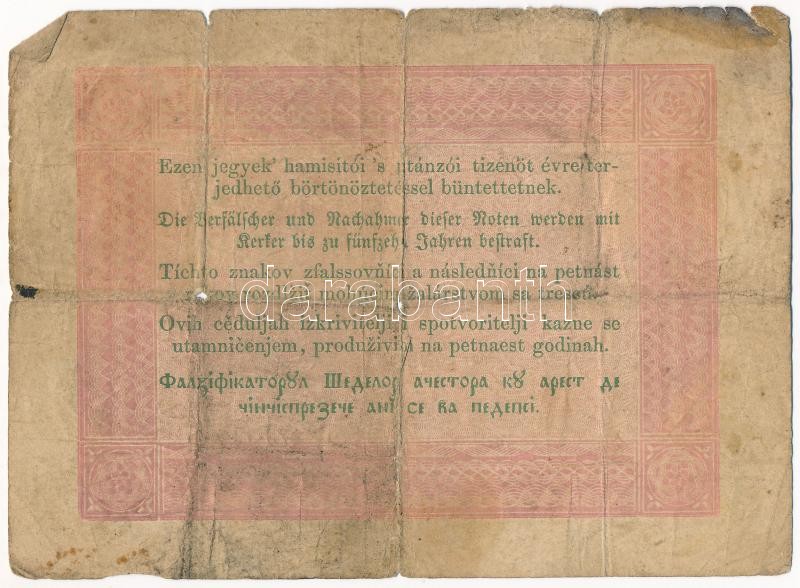 Ezen jegyek' hamisitói 's utánzói tizenöt évre ter-
jedhető börtönöztetéssel büntettetnek.
Die Verfälscher und Nachahmer dieser Noten werden mit
Kerker bis zu fünfzehn Jahren bestraft.
Tíchto znakov zfalssovňíci a následňíci na petnást
rokov
zalárstvom sa tresců.
darabanth
Ovih cěduljah izkrivitelji i spotvoritelji kazne se
utamničenjem, produživim na petnaest godinah.
Фалꙁiфiкаторꙋл Шеделор ачестора кꙋ арест де
чiнчiспреꙁече анi се ва педепсi.